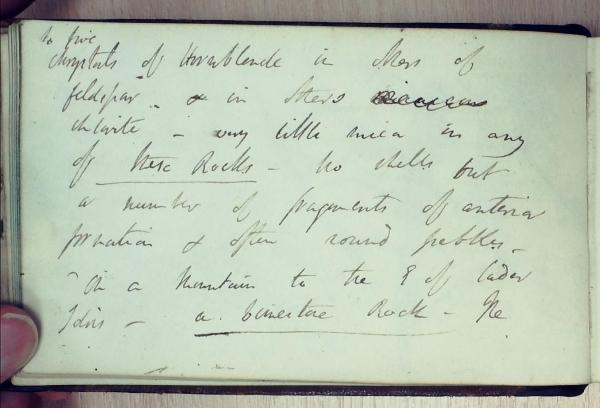 to five
chrystals of Hornblende in Some of
feldspar & in others
chlorite - very little mica in any
of these Rocks - No shells but
a number of fragments of anterior
formation & often round pebbles -
On a Mountain to the E of Cader
Idris - a Limestone Rock - The